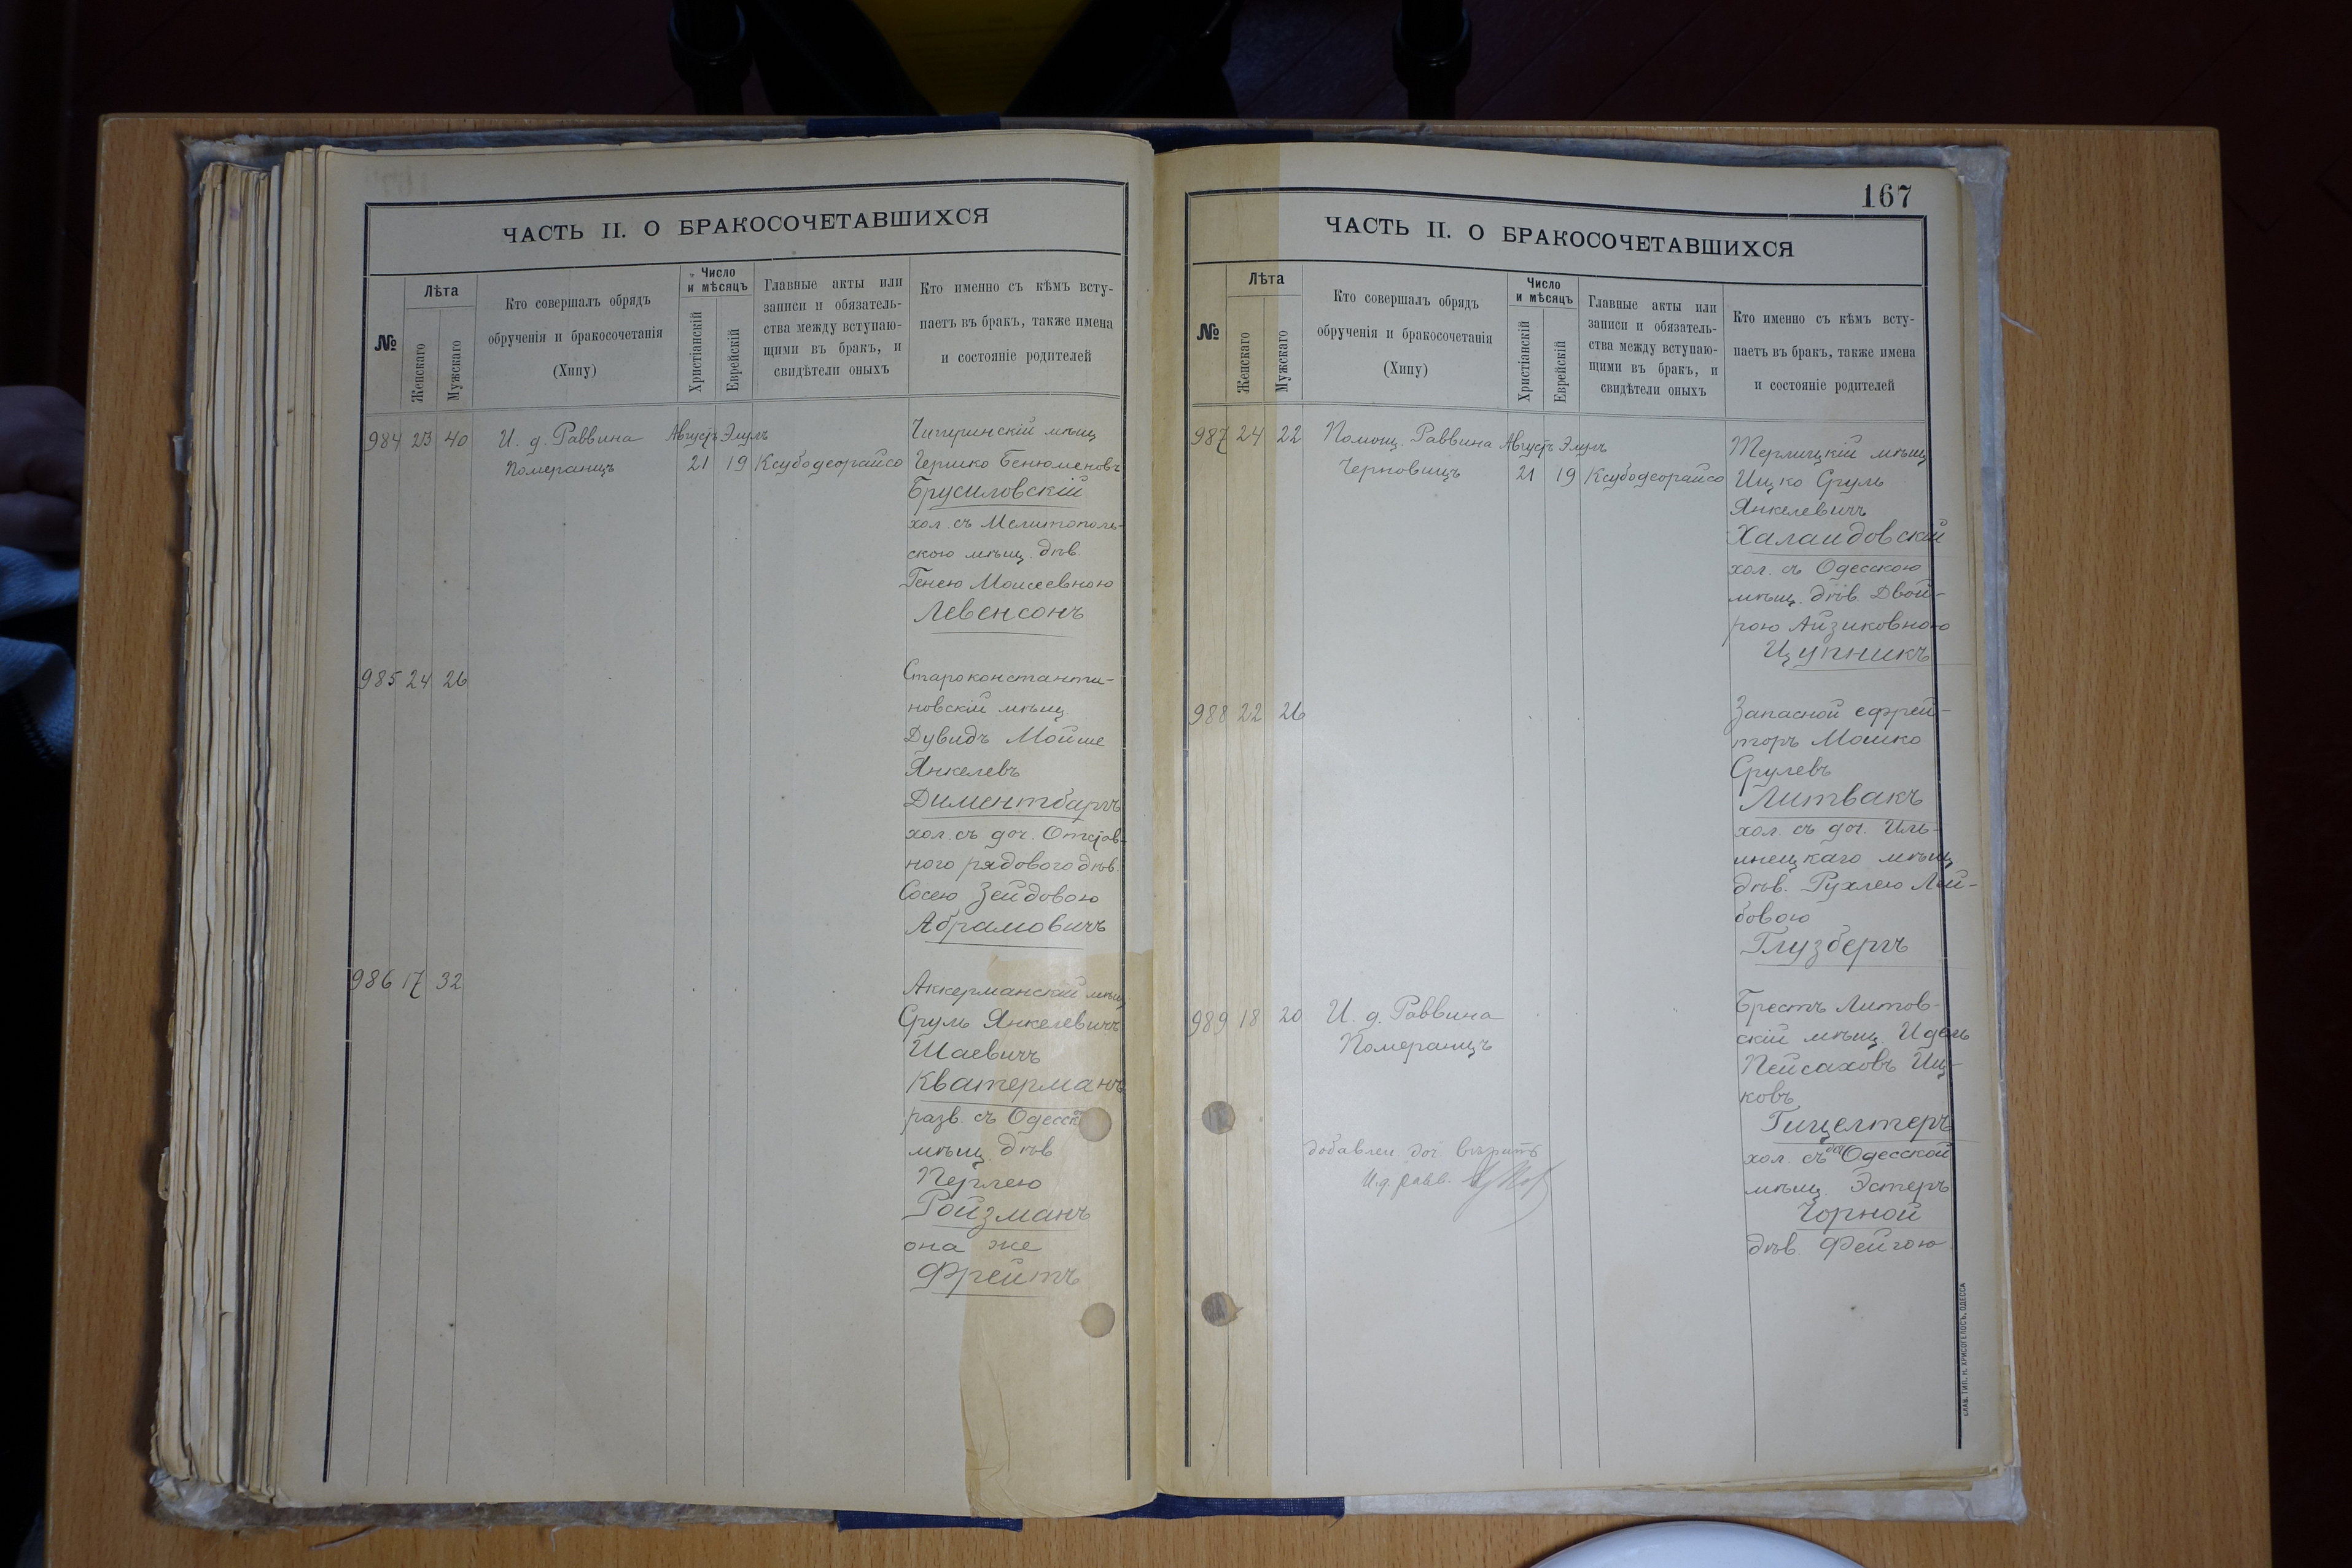 ЧАСТЬ II. О БРАКОСОЧЕТАВШИХСЯ
№
Лѣта
Женскаго
Мужскаго
Кто совершалъ обрядъ
обрученія и бракосочетанія
(Хипу)
Число
и мѣсяцъ
Христіанскій
Еврейскій
Главные акты или
записи и обязатель-
ства между вступаю-
щими въ бракъ, и
свидѣтели оныхъ
Кто именно съ кѣмъ всту-
паетъ въ бракъ, также имена
и состояніе родителей
984 23 40 И. д. Раввина Августъ Элулъ
Померанцъ 21 19 Ксубодеорайсо
Чигиринскій мѣщ
Гершко Бенюменовъ
Брусиловскій
хол. съ Мелитополь-
скою мѣщ. дѣв.
Генею Моисеевною
Левенсонъ
985 24 26
Староконстанти-
новскій мѣщ.
Дувидъ Мойше
Янкелевъ
Диментбаргъ
хол. съ доч. Отстав-
ного рядового дѣв.
Сосею Зейдовою
Абрамовичъ
986 17 32
Аккерманскій мѣщ
Сруль Янкелевичъ
Шаевичъ
Кватерманъ
разв. съ Одесск
мѣщ. дѣв
Перлею
Ройзманъ
она же
Фрейтъ
167
ЧАСТЬ II. О БРАКОСОЧЕТАВШИХСЯ
№
Лѣта
Женскаго
Мужскаго
Кто совершалъ обрядъ
обрученія и бракосочетанія
(Хипу)
Число
и мѣсяцъ
Христіанскій
Еврейскій
Главные акты или
записи и обязатель-
ства между вступаю-
щими въ бракъ, и
свидѣтели оныхъ
Кто именно съ кѣмъ всту-
паетъ въ бракъ, также имена
и состояніе родителей
987 24 22 Помощ. Раввина Августъ Элулъ
Черновицъ 21 19 Ксубодеорайсо
Терлицкій мѣщ
Ицко Сруль
Янкелевичъ
Халаидовскій
хол. съ Одесскою
мѣщ. дѣв. Двой-
рою Айзиковною
Цупникъ
988 22 26
Запасной ефрей-
торъ Мошко
Срулевъ
Литвакъ
хол. съ доч. Иль-
инецкаго мѣщ
дѣв. Рухлею Лей-
бовою
Глузбергъ
989 18 20 И. д. Раввина
Померанцъ
Брестъ Литов-
скій мѣщ. Идель
Пейсаховъ Иц-
ковъ
Гицелтеръ
хол. съ доч Одесской
мѣщ. Эстеръ
Чорной
дѣв. Фейгою
добавлен. доч. вѣрить
И. д. равв.
СЛАВ. ТИП. Н. ХРИСОГЕЛОСЪ, ОДЕССА